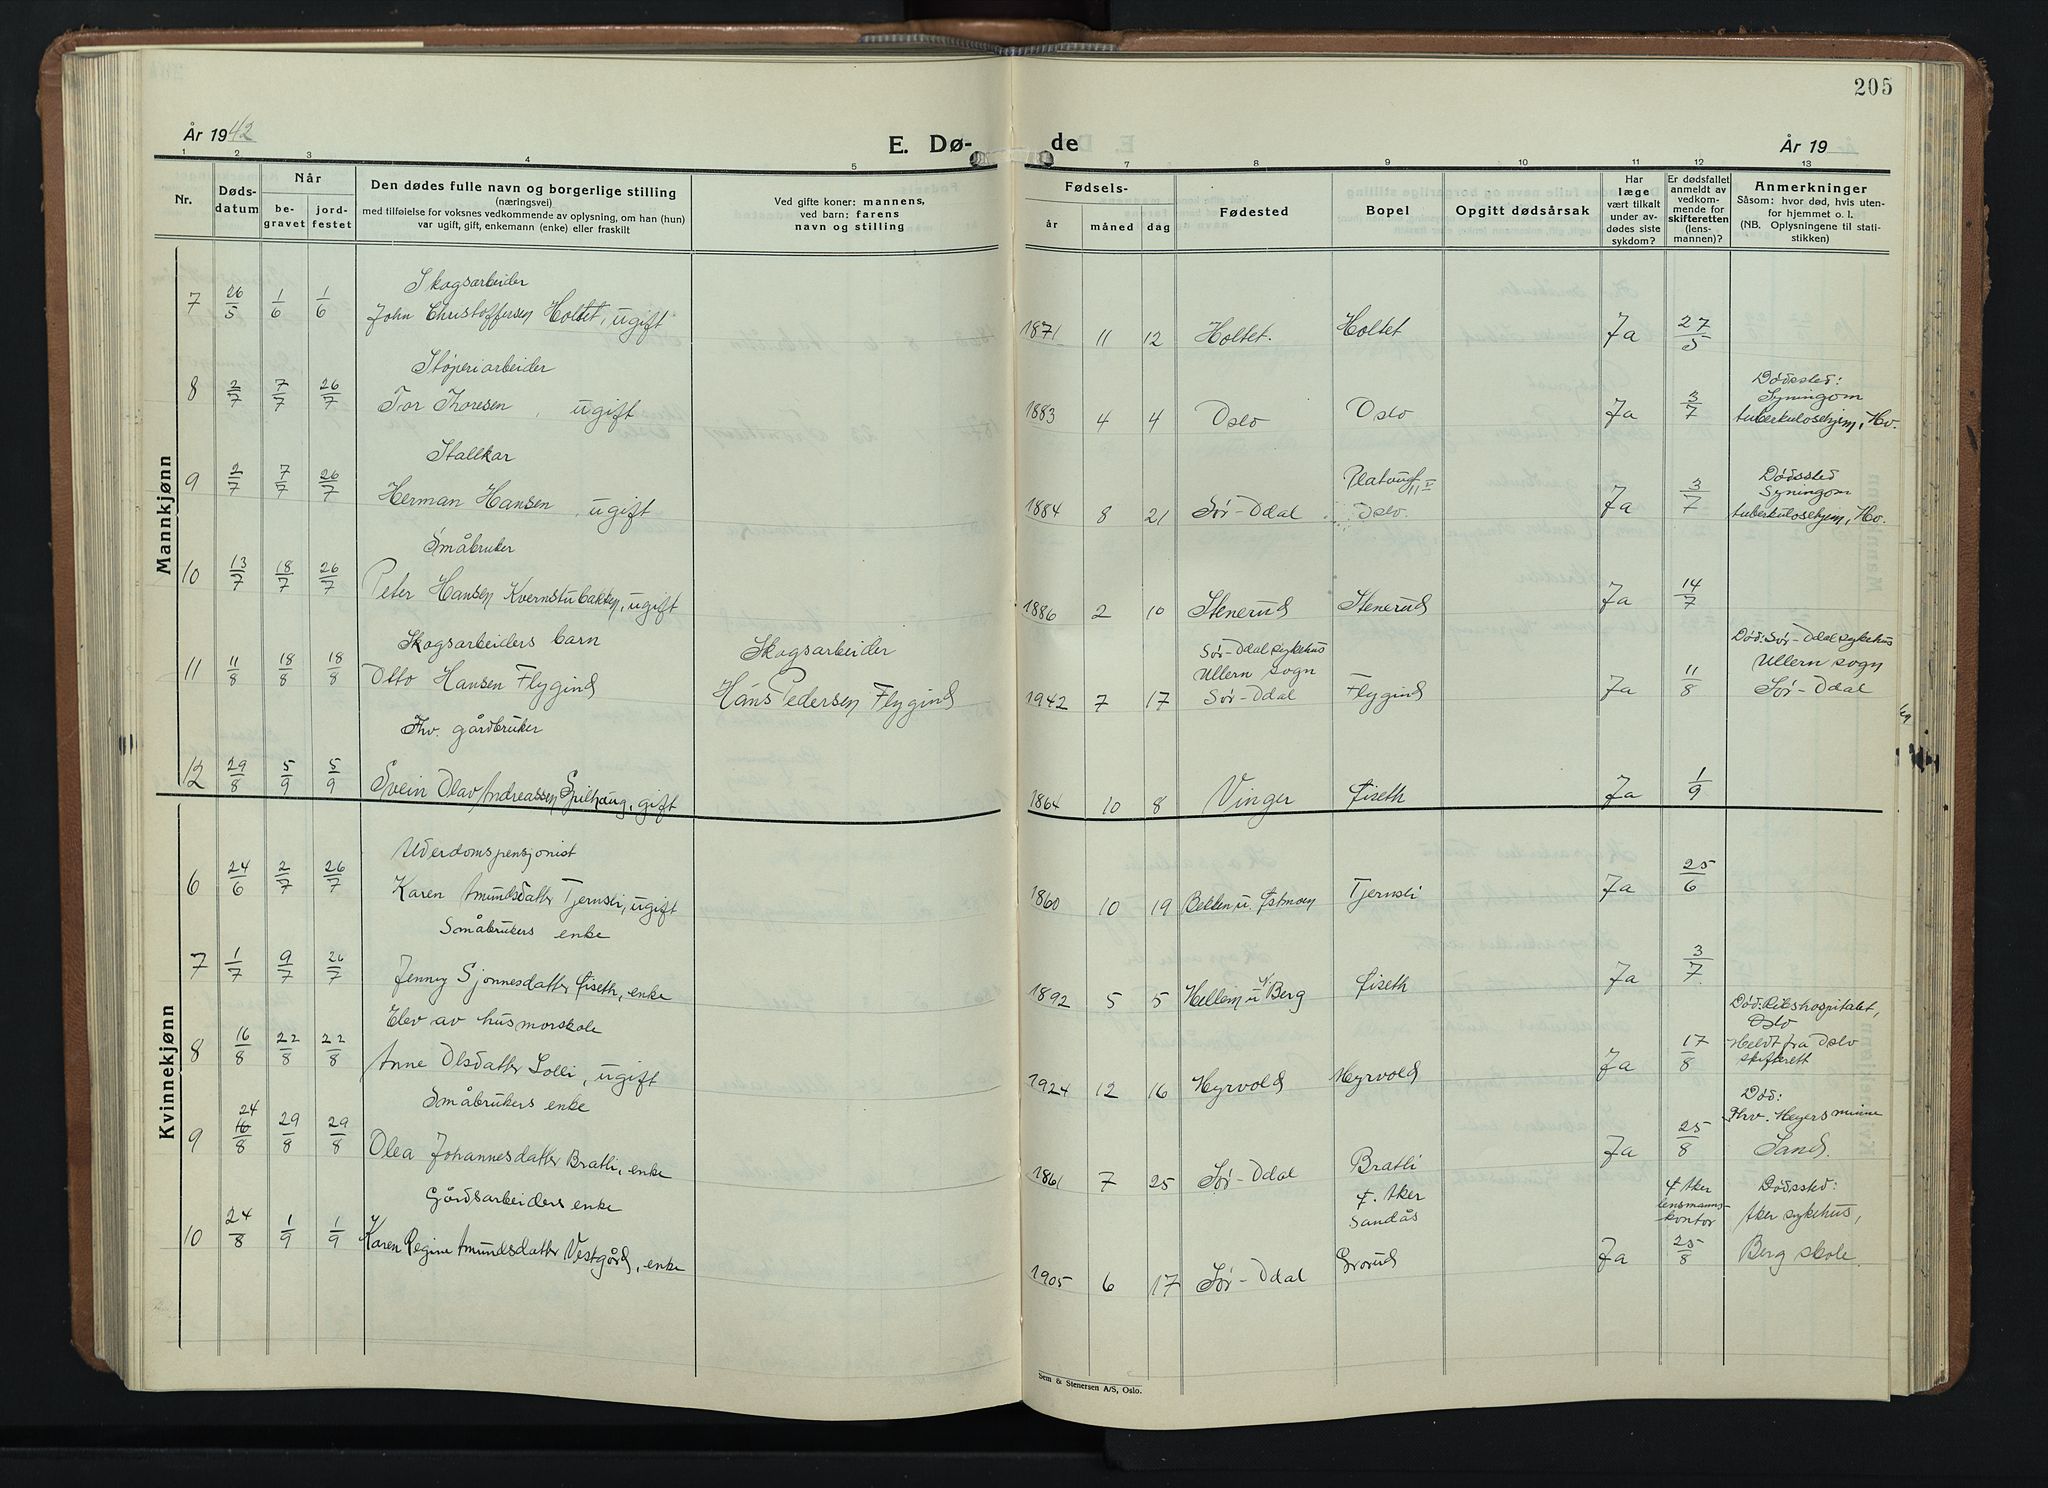 205
År 1942
E. Dø-
de
År 19
1 2 3 4 5 7 8 9 10 11 12 13
Nr.
Døds-
datum
Når
be-
gravet
jord-
festet
Den dødes fulle navn og borgerlige stilling
(næringsvei)
med tilføielse for voksnes vedkommende av oplysning, om han (hun)
var ugift, gift, enkemann (enke) eller fraskilt
Ved gifte koner: mannens,
ved barn: farens
navn og stilling
Fødsels-
år måned dag
Fødested
Bopel
Opgitt dødsårsak
Har
læge
vært tilkalt
under av-
dødes siste
sykdom?
Er dødsfallet
anmeldt av
vedkom-
mende for
skifteretten
(lens-
mannen)?
Anmerkninger
Såsom: hvor død, hvis uten-
for hjemmet o. l.
(NB. Oplysningene til stati-
stikken)
Mannkjønn
Skogsarbeider
7 26/5 1/6 1/6 John Christoffersen Holtet, ugift 1871 11 12 Holtet. Holtet Ja 27/5
Støperiarbeider
8 2/7 7/7 26/7 Tor Thoresen, ugift 1883 4 4 Oslo Oslo Ja 3/7
Dødssted:
Syningom
tuberkulosehjem, Hv.
Stallkar
9 2/7 7/7 26/7 Herman Hansen, ugift 1884 8 21 Sør-Odal
Oslo. Ja 3/7
Dødssted
Syningom
tuberkulosehjem, Hv.
Småbruker
10 13/7 18/7 26/7 Peter Hansen Kvernstubakken, ugift 1886 2 10 Stenerud Stenerud Ja 14/7
Skogsarbeiders barn
11 11/8 18/8 18/8 Otto Hansen Flygind
Skogsarbeider
Hans Pedersen Flygind
1942 7 17
Sør-Odal sykehus
Ullern sogn
Sør-Odal
Flygind Ja 11/8
Død: Sør-Odal sykehus
Ullern sogn
Sør-Odal
Fhv. gårdbruker
12 29/8 5/9 5/9 Svein Olav Andreassen Spilhaug, gift 1864 10 8 Vinger Øiseth Ja 1/9
Kvinnekjønn
Alderdomspensjonist
6 24/6 2/7 26/7 Karen Amundsdatter Tjernsli, ugift 1860 10 19 Bellen u. Østmoen Tjernsli Ja 25/6
Småbrukers enke
7 1/7 9/7 26/7 Jenny Sjønnesdatter Øiseth, enke 1892 5 5 Hellem u/ Berg Øiseth Ja 3/7
Elev av husmorskole
8 16/8 22/8 22/8 Anne Olsdatter Solli, ugift 1924 12 16 Hyrvold Hyrvold Ja 17/8
Død: Rikshospitalet,
Oslo
Meldt fra Oslo
skifterett
Småbrukers enke
9 24/8 29/8 29/8 Olea Johannesdatter Bratli, enke 1861 7 25 Sør-Odal Bratli Ja 25/8
Død:
Fhv. Meyers minne
Sand.
Gårdsarbeiders enke
10 24/8 1/9 1/9 Karen Regine Amundsdatter Vestgård, enke 1905 6 17 Sør-Odal
Ø. Aker
Sandås
Grorud
Ja
Ø Aker
lensmanns-
kontor
25/8
Dødssted:
Aker sykehus,
Berg skole.
Sem & Stenersen A/S, Oslo.